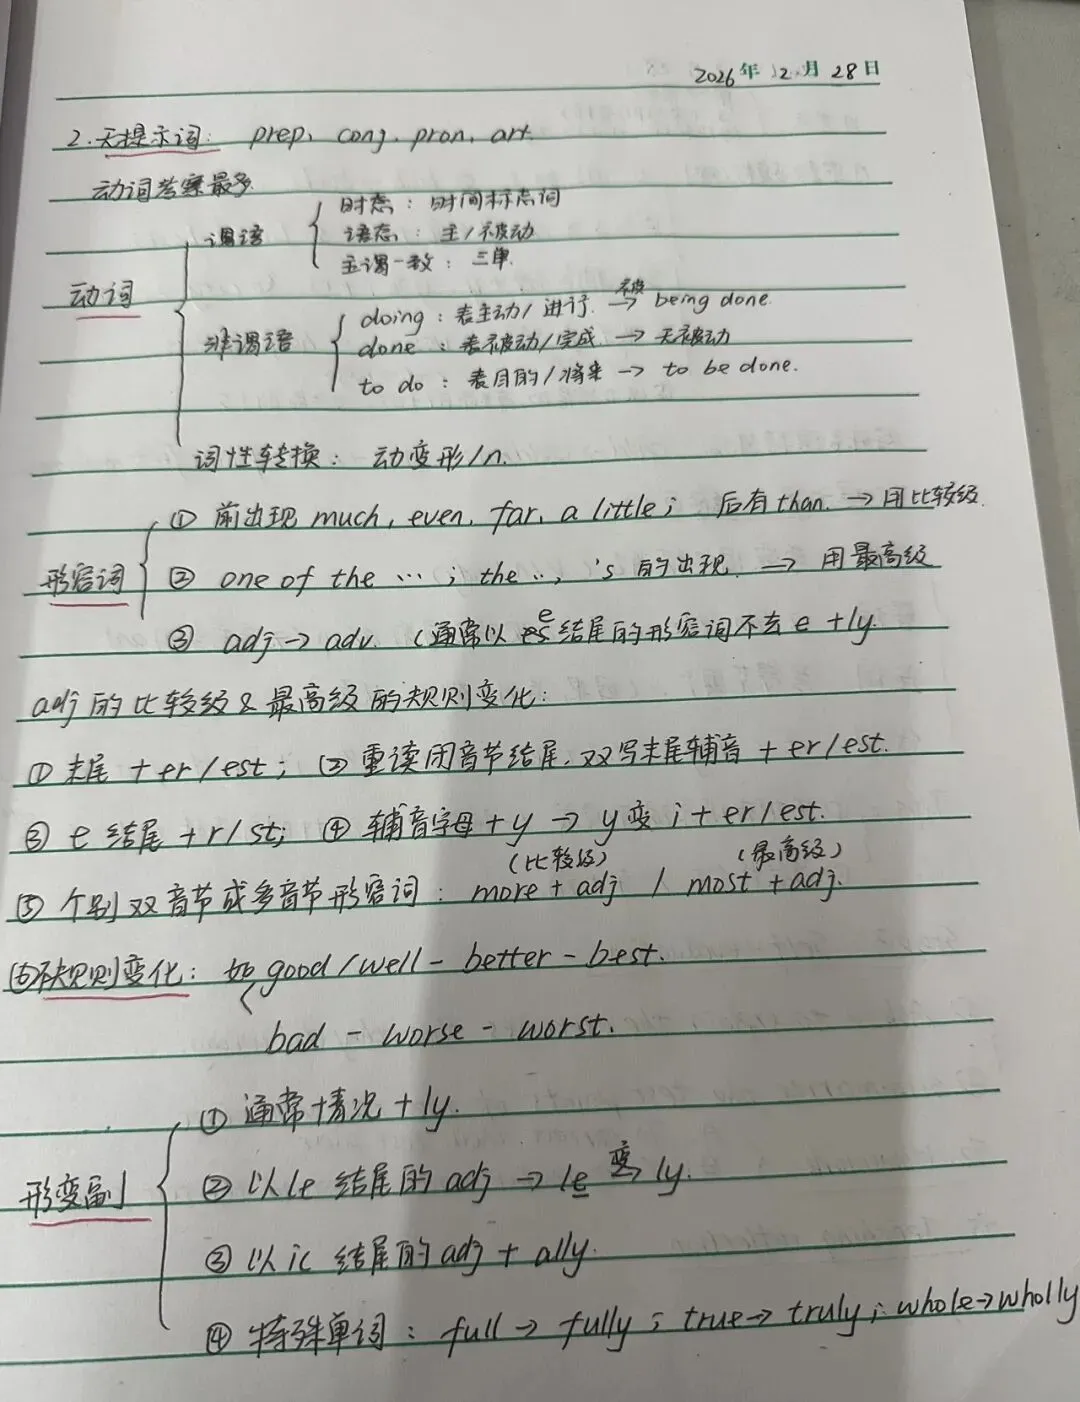 2026年 12月 28日
2.无提示词: prep, conj, pron, art.
动词考察最多
谓语 { 时态: 时间标志词
语态: 主/被动
主谓一致: 三单
动词
非谓语 { doing: 表主动/进行 被→ being done
done: 表被动/完成 → 无被动
to do: 表目的/将来 → to be done.
词性转换: 动变形/n.
① 前出现 much, even, far, a little; 后有than. → 用比较级
形容词 ② one of the ...; the ..., 's 的出现 → 用最高级
③ adj → adv. (通常以 e 结尾的形容词不去 e + ly.
adj 的比较级 & 最高级的规则变化:
① 末尾 + er/est; ② 重读闭音节结尾, 双写末尾辅音 + er/est.
③ e 结尾 + r/st; ④ 辅音字母 + y → y 变 i + er/est.
(比较级) (最高级)
⑤ 个别双音节或多音节形容词: more + adj / most + adj.
⑥不规则变化: 如 good/well - better - best.
bad - worse - worst.
① 通常情况 + ly.
形变副 ② 以 le 结尾的 adj → le 变 ly.
③ 以 ic 结尾的 adj + ally.
④ 特殊单词: full → fully; true → truly; whole → wholly